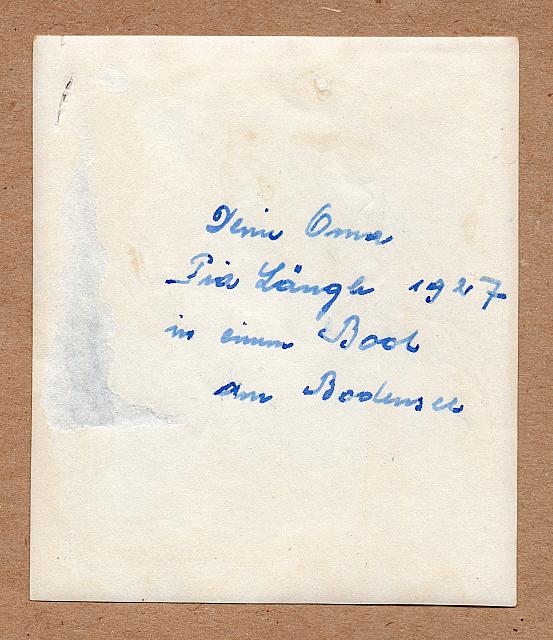 Deine Oma
Pia Längle 1927
in einem Boot
am Bodensee